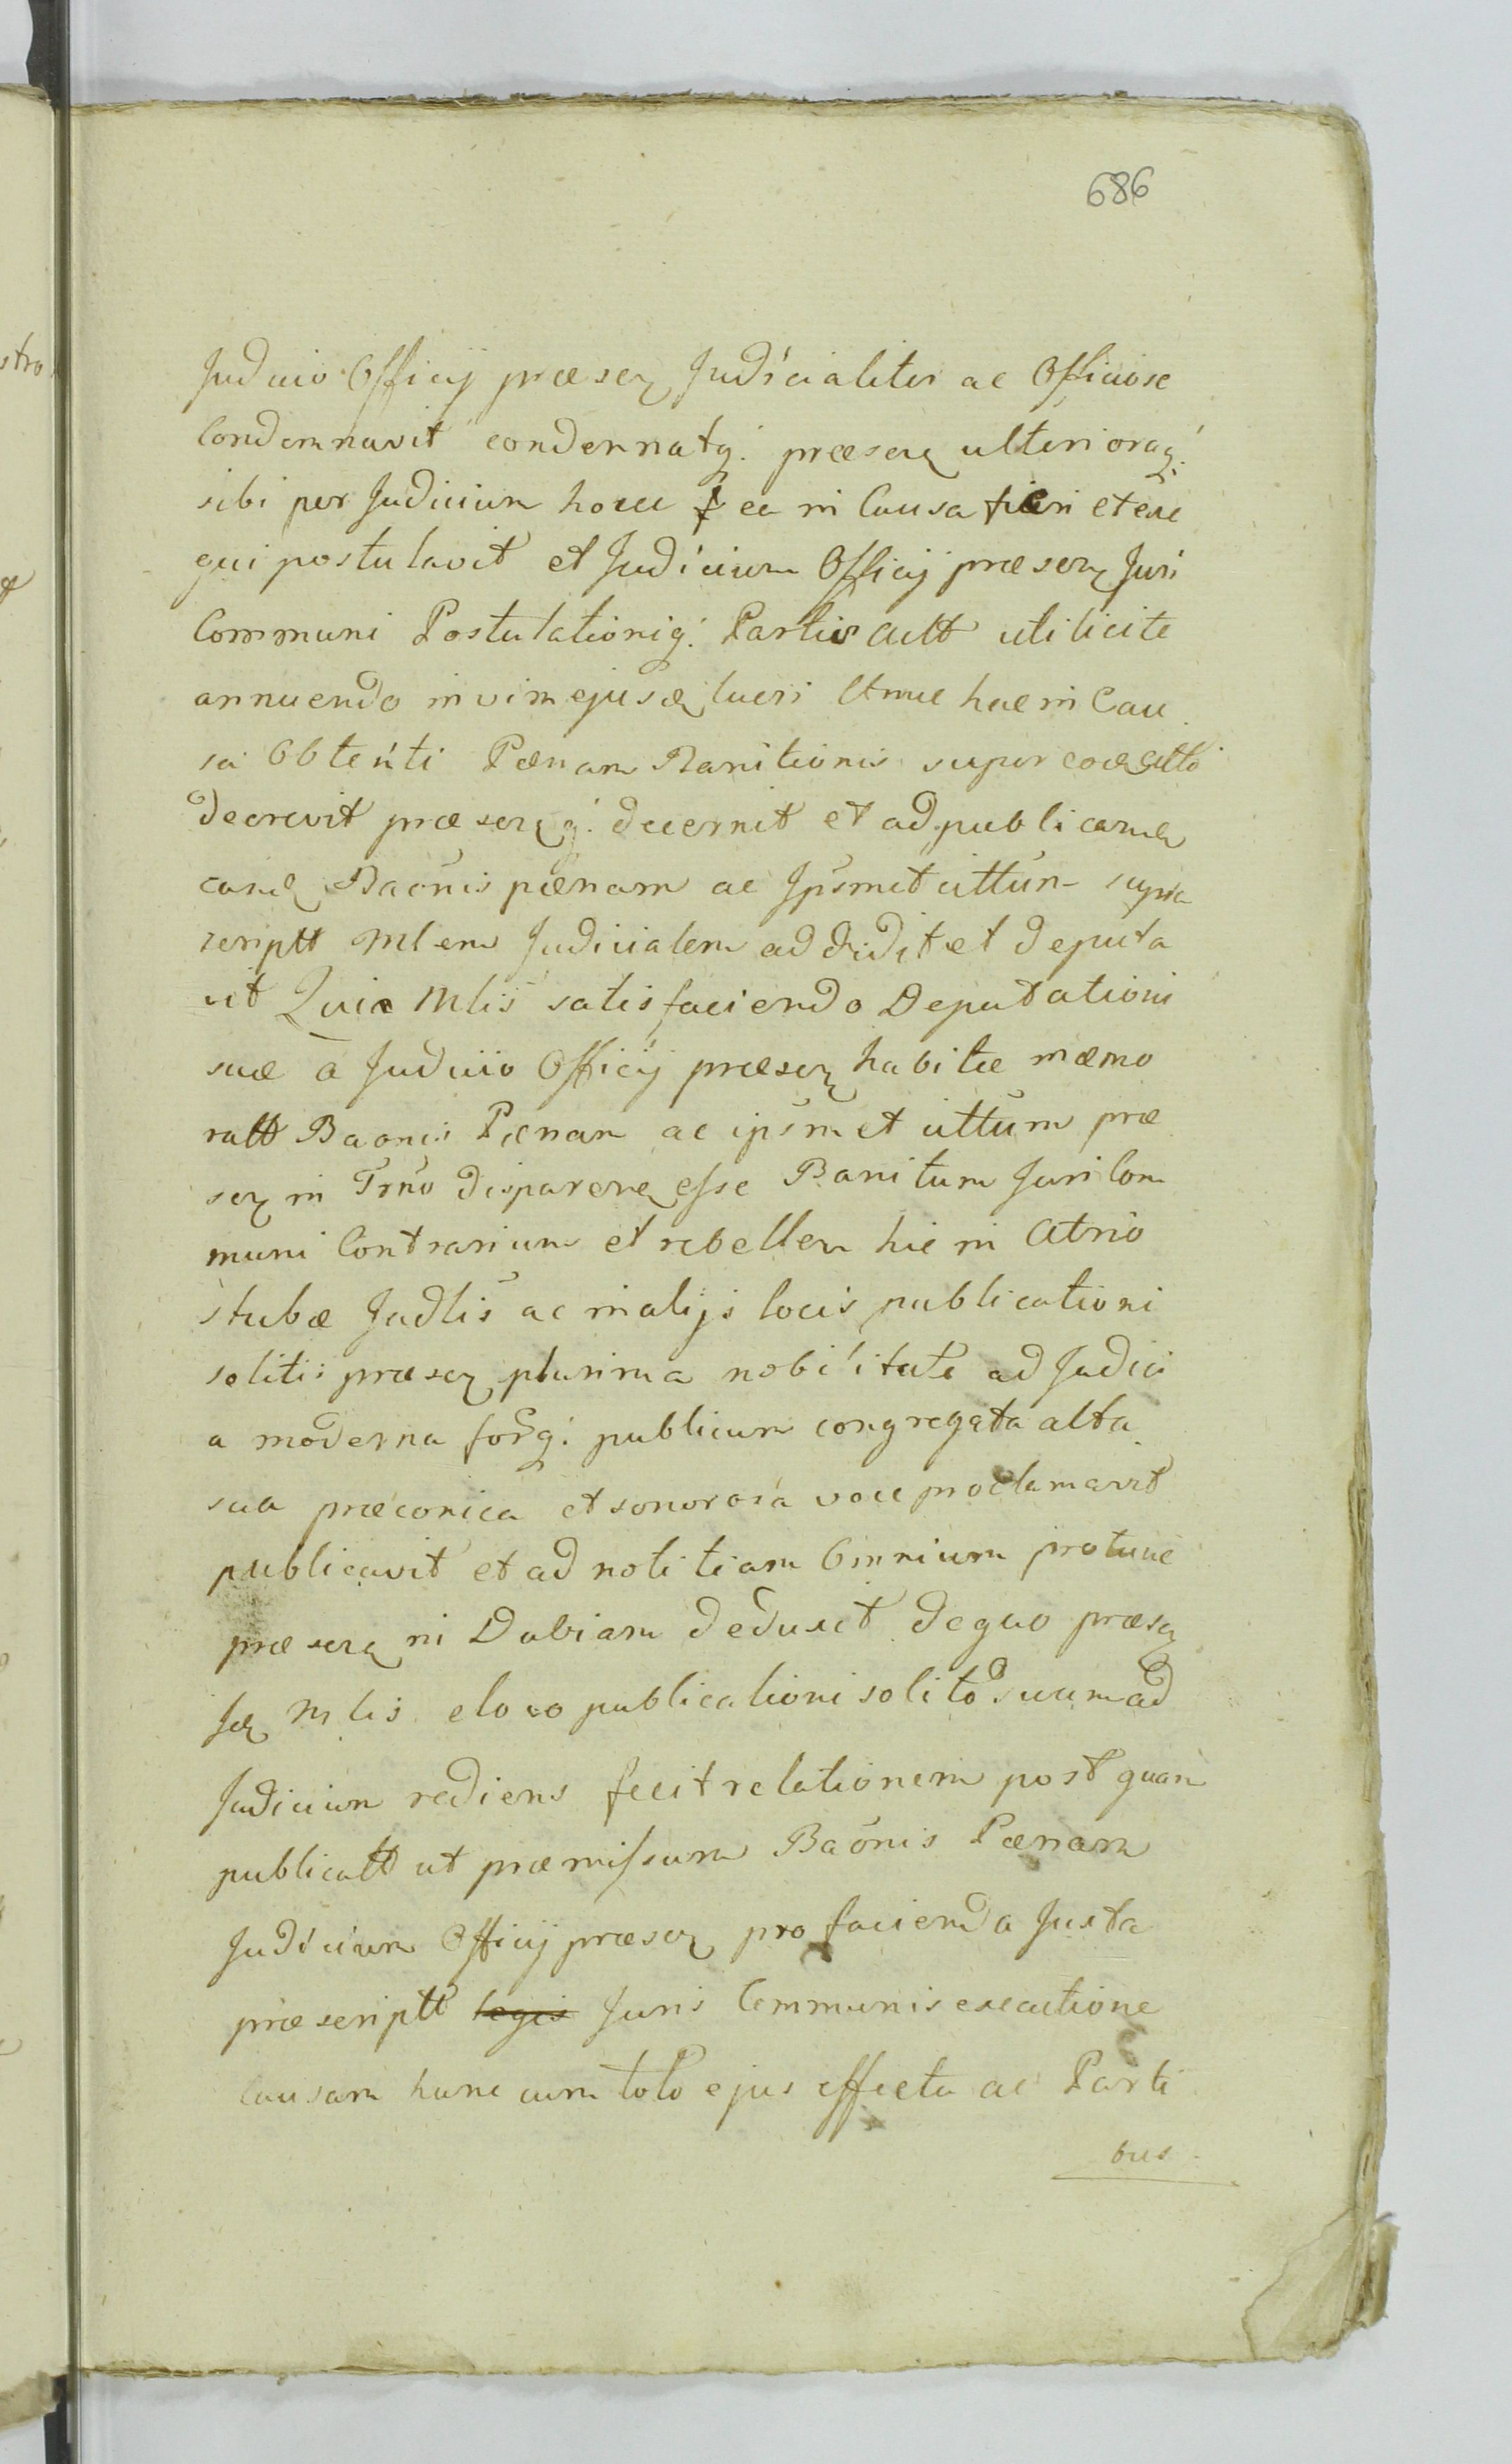 686
Judicio Officij præsen Judicialiter ac Officiose
Condemnavit condemnatq: præsen ulterioraq:
sibi per Judicium hocce ea in Causa fieri et exe
qui postulavit et Judicium Officij præsen Juri
Communi Postulationiq: Partis Actt uti licite
annuendo in vim ejusd lucri hac in Cau
sa Obtenti Pænam Banitionis super eod Citto
decrevit præsenq: decernit et ad publicand
eand Baonis pænam ac Ipsmet cittum supra
scriptt Mlem Judicialem addidit et deputa
vit Qui Mlis satisfaciendo Deputationi
suæ a Judicio Officij præsen habitæ mæmo
ratt Baonis Pænam ac ipsmet cittum præ
sen in Trno disparen esse Banitum Juri Com
muni Contrarium et rebellem hic in Atrio
stubæ Judlis ac in alijs locis publicationi
solitis præsen plurima nobilitate ad Judici
a moderna forq: publicum congregata alta
sua præconica et sonorosa voce proclamavit
publicavit et ad notitiam Omnium pro tunc
præsen in Dubiam deduxit de quo præsen
Id Mlis e loco publicationi solito suam ad
Judicium rediens fecit relationem post quam
publicatt ut præmissum Baonis Pænam
Judicium Officij præsen pro facienda Juxta
præscriptt legis Juris Communis executione
Causam hanc cum toto ejus effectu ac Parti
bus
stro